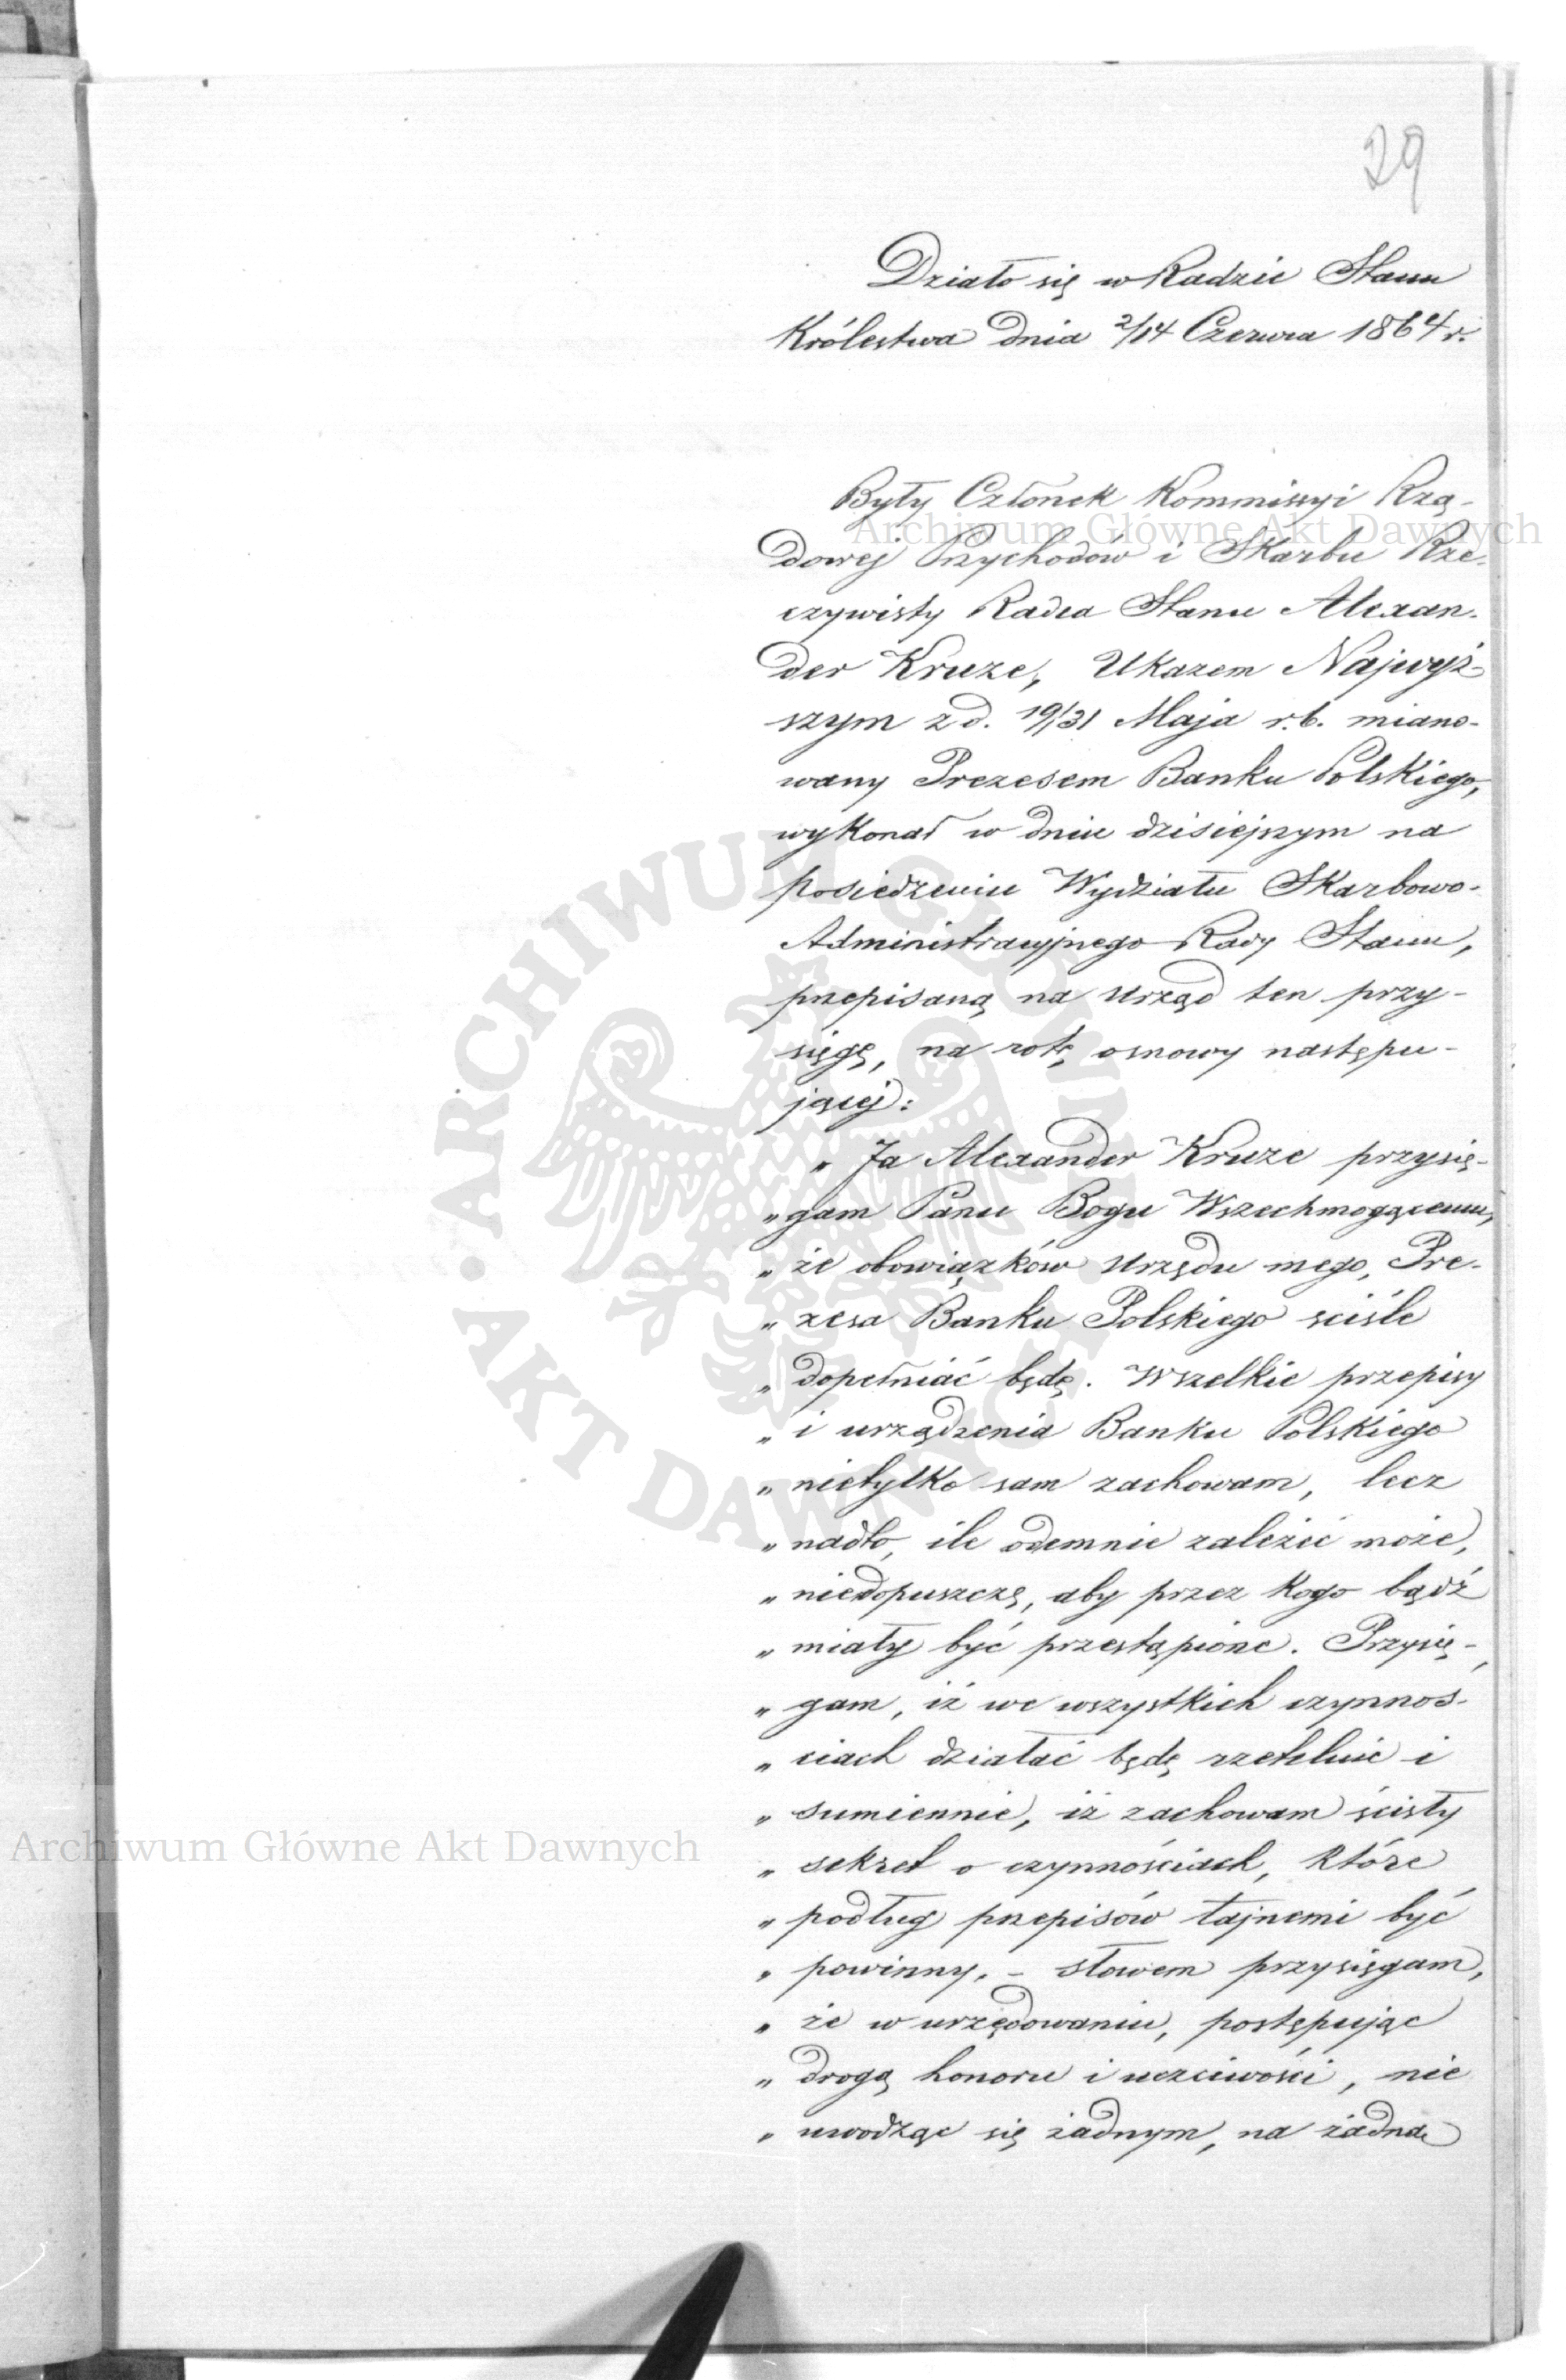 29
Działo się w Radzie Stanu
Królestwa dnia 2/14 Czerwca 1864 r.
Były Członek Kommissyi Rzą-
dowej Przychodów i Skarbu Rze-
czywisty Radca Stanu Alexan-
der Kruze, Ukazem Najwyż-
szym z d. 19/31 Maja r.b. miano-
wany Prezesem Banku Polskiego,
wykonał w dniu dzisiejszym na
posiedzeniu Wydziału Skarbowo-
Administracyjnego Rady Stanu,
przepisaną na urząd ten przy-
sięgę, na rotę osnowy następu-
jącej:
„ Ja Alexander Kruze przysię-
„ gam Panu Bogu Wszechmogącemu,
„ że obowiązków urzędu mego, Pre-
„ zesa Banku Polskiego ściśle
„ dopełniać będę. Wszelkie przepisy
„ i urządzenia Banku Polskiego
„ nietylko sam zachowam, lecz
„ nadto, ile odemnie zależeć może,
„ niedopuszczę, aby przez kogo bądź
„ miały być przestąpione. Przysię-
„ gam, iż we wszystkich czynnoś-
„ ciach działać będę rzetelnie i
„ sumiennie, iż zachowam ścisły
„ sekret o czynnościach, które
„ podług przepisów tajnemi być
„ powinny, - słowem przysięgam,
„ że w urzędowaniu, postępując
„ drogą honoru i uczciwości, nie
„ uwodząc się żadnym, na żadną
Archiwum Główne Akt Dawnych
Archiwum Główne Akt Dawnych
ARCHIWUM GŁÓWNE • AKT DAWNYCH •